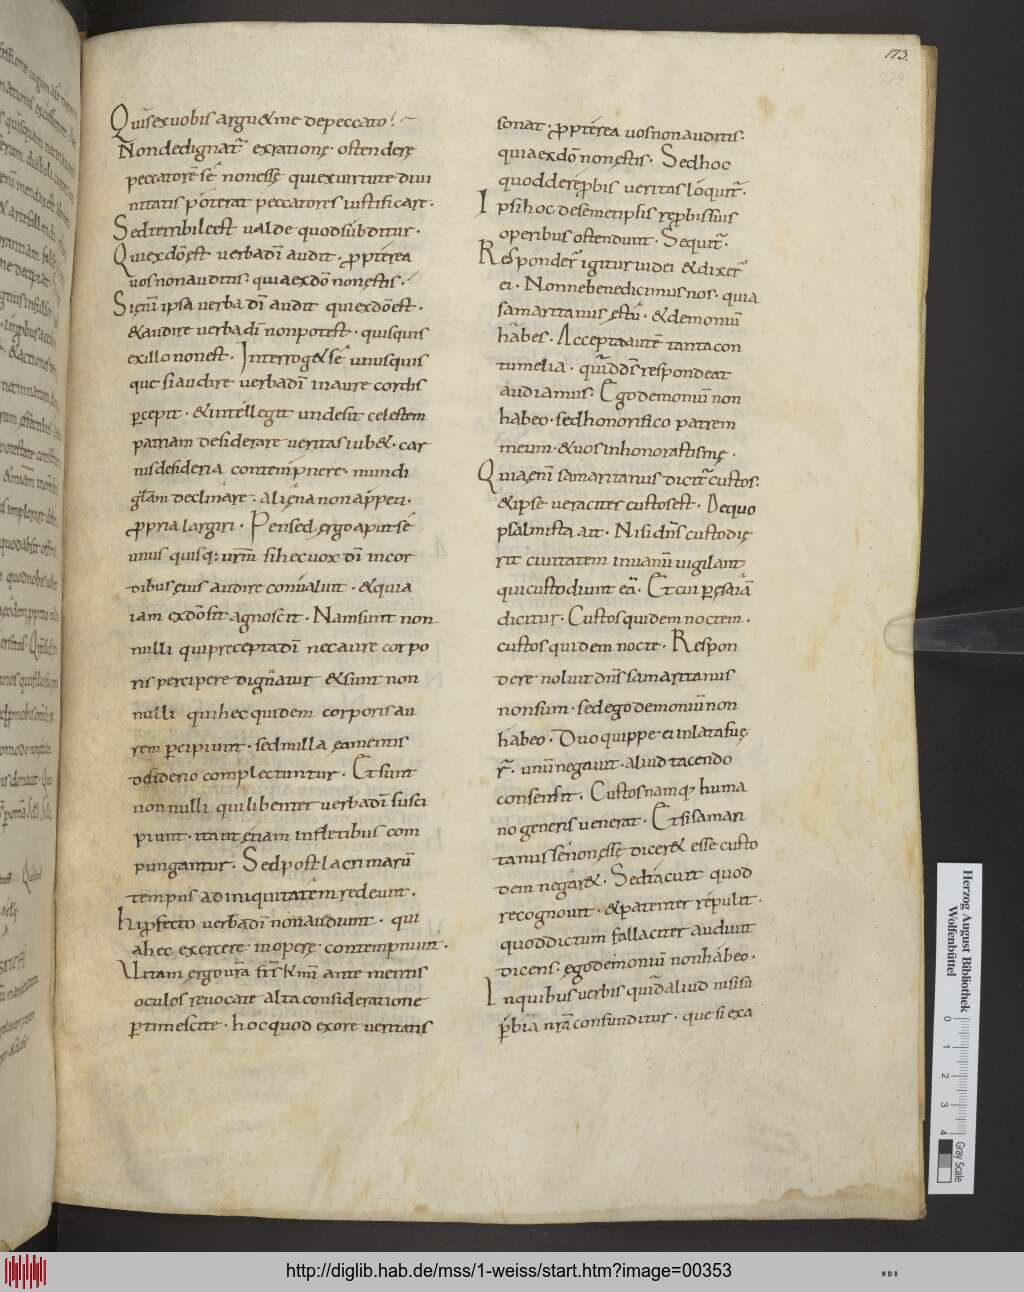 173.
Quis ex uobis arguet me de peccato?
Non dedignat̄ ex ratione ostendere
peccatorē sē non esse qui ex uirtute diui
nitatis poterat peccatores iustificare.
Sed terribile est ualde quod subditur.
Qui ex dō est uerba dī audit. ꝓpterea
uos non auditis: quia ex dō non estis.
Si enī ipsa uerba dī audit qui ex dō est.
& audire uerba dī non potest. quisquis
ex illo non est. Interrog& sē unusquis
que si audire uerba dī in aure cordis
ꝑcepit. & intellegit unde sit celestem
patriam desiderare ueritas iub&. car
nis desideria contempnere. mundi
gl̄am declinare. aliena non appeti.
ꝓpria largiri. Penset ergo aput sē
unus quisq: ur̄m si hec uox dī in cor
dibus eius audire conualuit. & quia
iam ex dō sit agnoscit. Nam sunt non
nulli qui precepta dī nec aure corpo
ris percipere dignātur & sunt non
nulli qui hec quidem corporis au
rem ꝑcipiunt. sed nulla ea mentis
dsiderio complectuntur. Et sunt
non nulli qui libenter uerba dī susci
piunt. ita ut etiam in fletibus com
pungantur. Sed post lacrimarū
tempus ad iniquitatem redeunt.
hi ꝓfecto uerba dī non audiunt. qui
a hec exercere in opere contempnunt.
Uitam ergo urā frs̄ km̄i ante mentis
oculos reuocate alta consideratione
ꝑtimescite. hoc quod ex ore ueritatis
sonat. ꝓpterea uos non auditis:
quia ex dō non estis. Sed hoc
quod de reꝓbis ueritas loquit̄.
Ipsi hoc de semetipsis reꝓbis suis
operibus ostendunt. Sequit̄.
Responder̄ igitur iudei & dixer̄
ei. Nonne bene dicimus nos. quia
samaritanus es tu. & demoniū
habes. Accepta autē tanta con
tumelia. quid dn̄s respondeat
audiamus. Ego demoniū non
habeo. sed honorifico patrem
meum. & uos inhonorastis me.
Quia enī samaritanus dicit̄ custos.
& ipse ueraciter custos est. De quo
psalmista ait. Nisi dn̄s custodie
rit ciuitatem in uanū uigilant
qui custodiunt eā. Et cui ꝑ esaiā
dicitur. Custos quid em noctem.
custos quid em nocte. Respon
dere noluit dn̄s samaritanus
non sum. sed ego demoniū non
habeo. Duo quippe ei inlata fue
r̄. unū negauit. aliud tacendo
consensit. Custos namq; huma
no generis uenerat. Et si samari
tanus se non esse dicer& esse custo
dem negar&. Sed tacuit quod
recognouit. & patienter repulit.
quod dictum fallaciter audiuit
dicens. ego demoniū non habeo.
In quibus uerbis quid aliud nisi sū
ꝑbia nrā confunditur. que si exa
Herzog August Bibliothek
Wolfenbüttel
0 1 2 3 4
Gray Scale
http://diglib.hab.de/mss/1-weiss/start.htm?image=00353